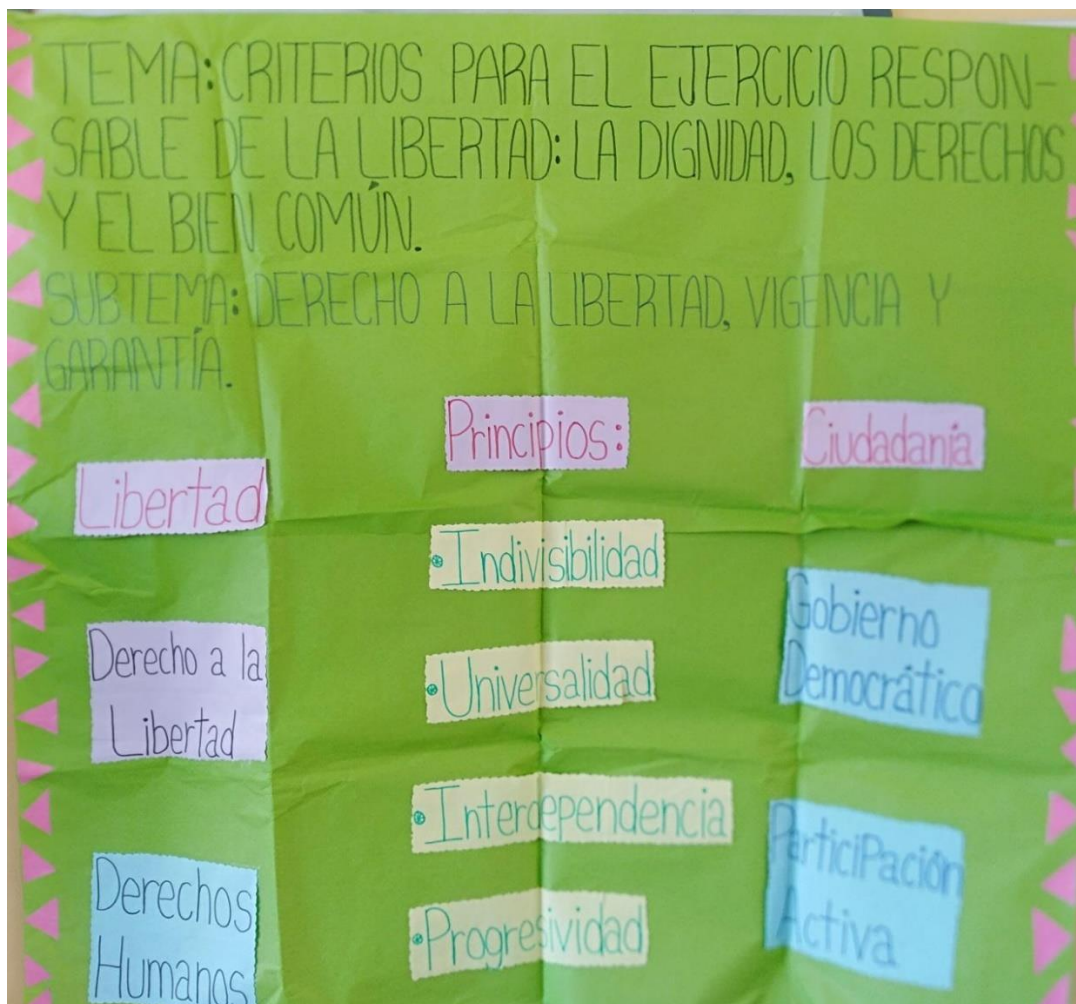 TEMA: CRITERIOS PARA EL EJERCICIO RESPON-
SABLE DE LA LIBERTAD: LA DIGNIDAD, LOS DERECHOS
Y EL BIEN COMÚN.
SUBTEMA: DERECHO A LA LIBERTAD, VIGENCIA Y
GARANTÍA.
Libertad
Derecho a la
Libertad
Derechos
Humanos
Principios:
• Indivisibilidad
• Universalidad
• Interdependencia
• Progresividad
Ciudadanía
Gobierno
Democrático
ParticiPación
Activa